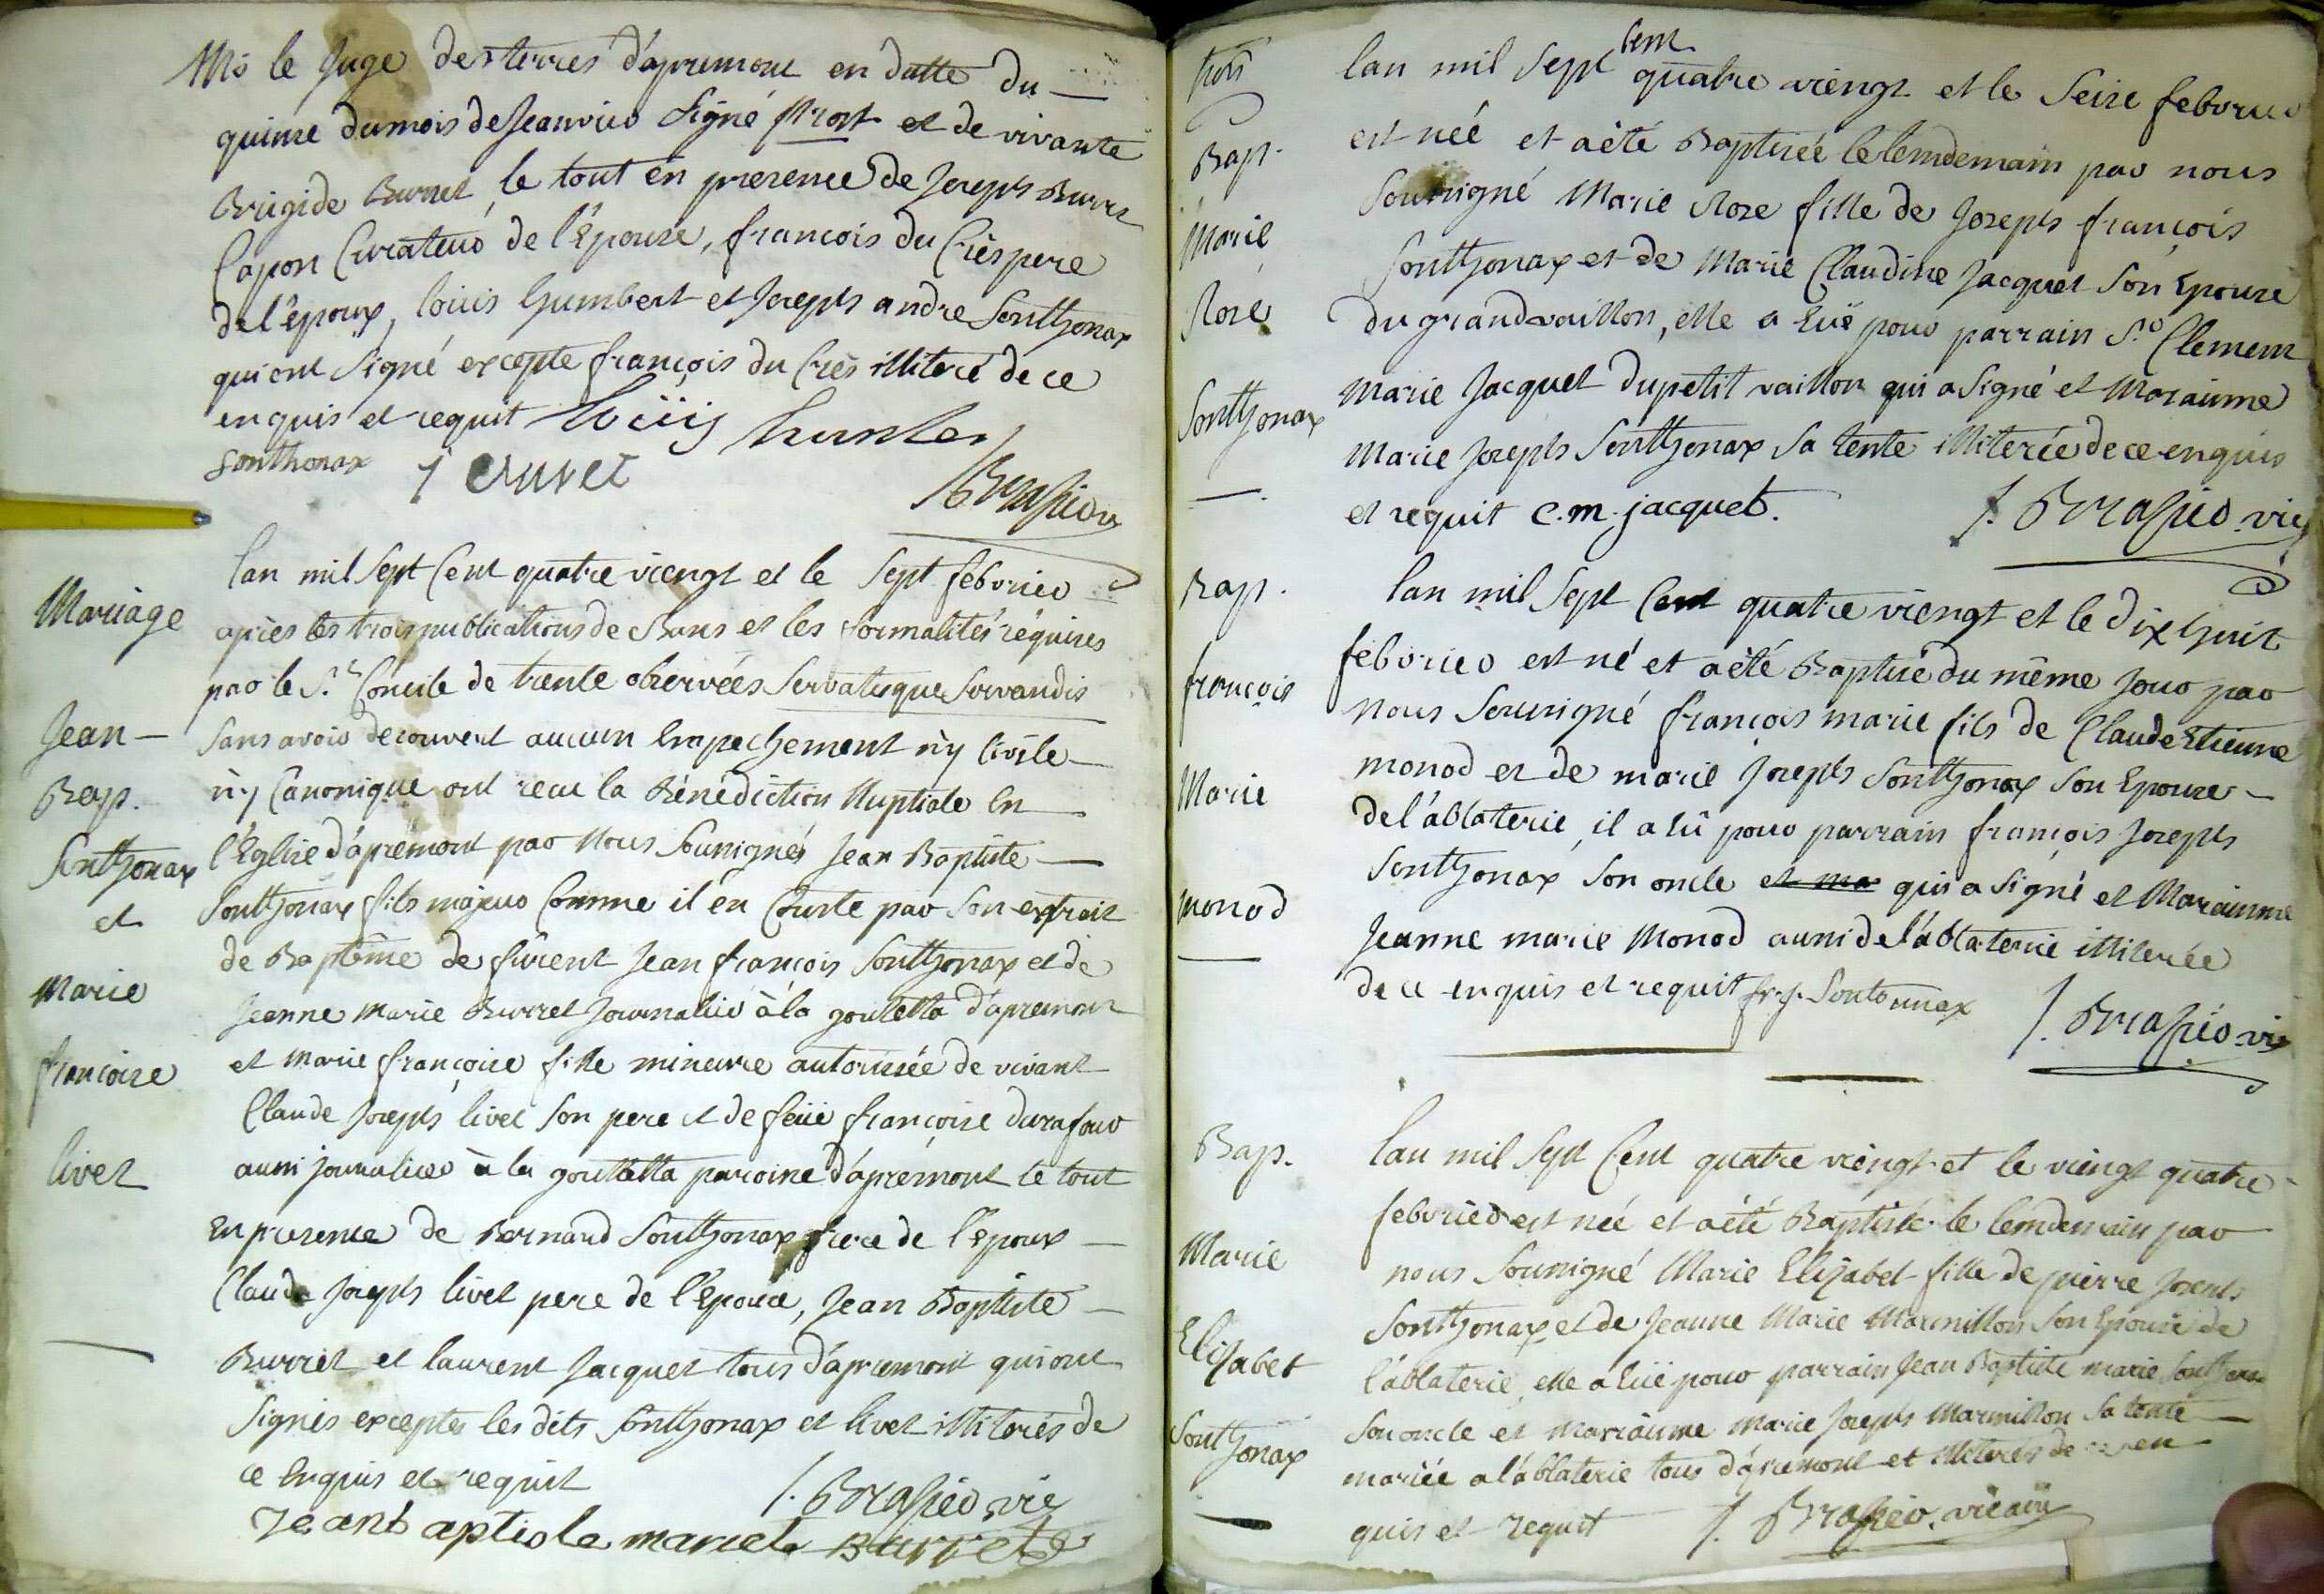 Mr le Juge des terres d'apremont en datte du
quinze du mois de Jeanvier Signé prost et de vivante
Brigide Burret, le tout en presence de Joseph Burret
Capon Curateur de l'Epouse, francois du Crès pere
de l'epoux, loüis humbert et Joseph andre Sonthonax
qui ont Signé excepte françois du Crès illiteré de ce
enquis et requit Loüis humber
Sonthonax J Buret
J Brasier
Mariage
Jean
Bap.
Sonthonax
et
Marie
françoise
livet
lan mil Sept Cent quatre viengt et le Sept febvrier
après les trois publications de Bans et les formalités réquises
par le St Concile de trente observées Servatisque Servandis
Sans avoir decouvert aucun Empechement n'y Civile
n'y Canonique ont recu la Bénédiction Nuptiale En
l'Eglise d'apremont par Nous Soussignés Jean Baptiste
Sonthonax fils majeur Comme il en Conste par Son extrait
de Baptême de furent Jean françois Sonthonax et de
Jeanne Marie Burret Journalier à la goutetta d'apremont
et Marie françoise fille mineure autorissée de vivant
Claude Joseph livet Son pere et de feüe françoise durafour
aussi journalier à la gouttetta paroisse d'apremont le tout
En presence de Bernard Sonthonax frere de l'Epoux
Claude Joseph livet pere de l'Epouse, Jean Baptiste
Burret et laurent Jacquet tous d'apremont qui ont
Signés exceptes les dits Sonthonax et livet illiterés de
ce Enquis et requit J. Brasier vic
Jeanbaptiste mariet Burret
Bap.
Marie
Rose
Sonthonax
lan mil Sept Cent quatre viengt et le Seize febvrier
est née et a èté Baptisée le lendemain par nous
Soussigné Marie Rose fille de Joseph françois
Sonthonax et de Marie Claudine Jacquet Son Epouse
du grandvaillon, elle a Euë pour parrain Sr Clement
Marie Jacquet du petit vaillon qui a Signé et Maraime
Marie Joseph Sonthonax Sa tente illiterée de ce enquis
et requit c.m. jacquet. J. Brasier vic
Bap.
françois
Marie
monod
lan mil Sept Cent quatre viengt et le dix huit
febvrier est né et a èté Baptisé du même Jour par
Nous Soussigné françois marie fils de Claude Etienne
monod et de marie Joseph Sonthonax Son Epouse
de l'ablaterie, il a Eü pour parrain françois Joseph
Sonthonax Son oncle et ma qui a Signé et Marainne
Jeanne marie Monod aussi de l'ablaterie illiterée
de ce enquis et requit fr. j. Sontonnax J. Brasier vic
Bap.
Marie
Elizabet
Sonthonax
lan mil Sept Cent quatre viengt et le viengt quatre
febvrier est née et a èté Baptisée le lendemain par
nous Soussigné Marie Elizabet fille de pierre Joseph
Sonthonax et de Jeanne Marie Marmillon Son Epouse de
l'ablaterie, elle a Euë pour parrain Jean Baptiste marie Sonthonax
Son oncle et marraime Marie Joseph Marmillon Sa tente
mariée a l'ablaterie tous d'apremont et illiterés de ce en
quis et requit J. Brasier, vicaire